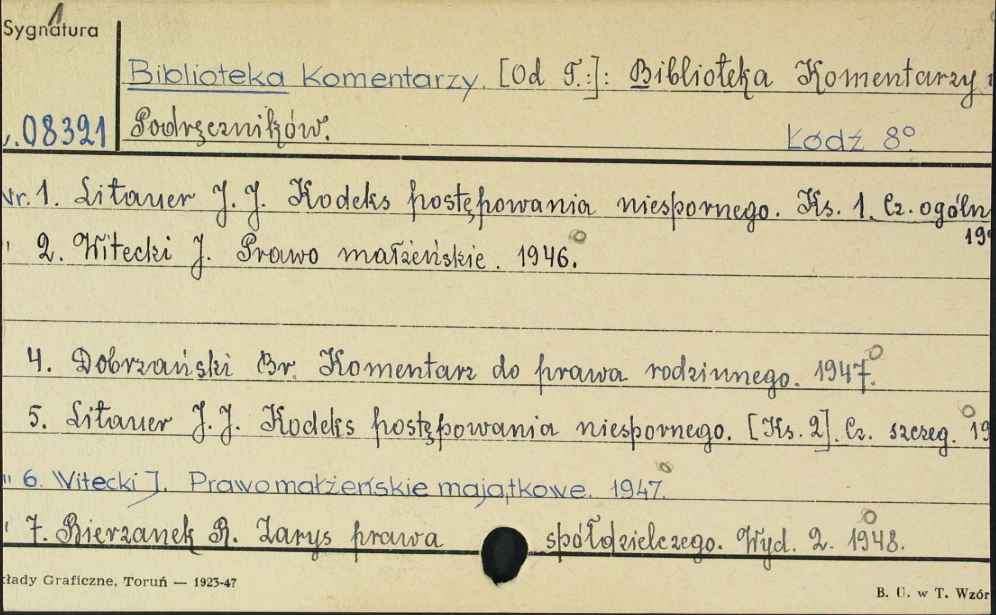 1
Sygnatura
Biblioteka Komentarzy. [Od T.:]: Biblioteka Komentarzy i
08321 Podręczników. Łódź 8º
Nr. 1. Litauer J. J. Kodeks postępowania niespornego. Ks. 1. Cz. ogóln
19
" 2. Witecki J. Prawo małżeńskie. 1946.
4. Dobrzański Br. Komentarz do prawa rodzinnego. 1947.
5. Litauer J. J. Kodeks postępowania niespornego. [Ks. 2]. Cz. szczeg. 19
" 6. Witecki J. Prawo małżeńskie majątkowe. 1947.
" 7. Bierzanek R. Zarys prawa spółdzielczego. Wyd. 2. 1948.
kłady Graficzne, Toruń — 1923-47
B. U. w T. Wzór